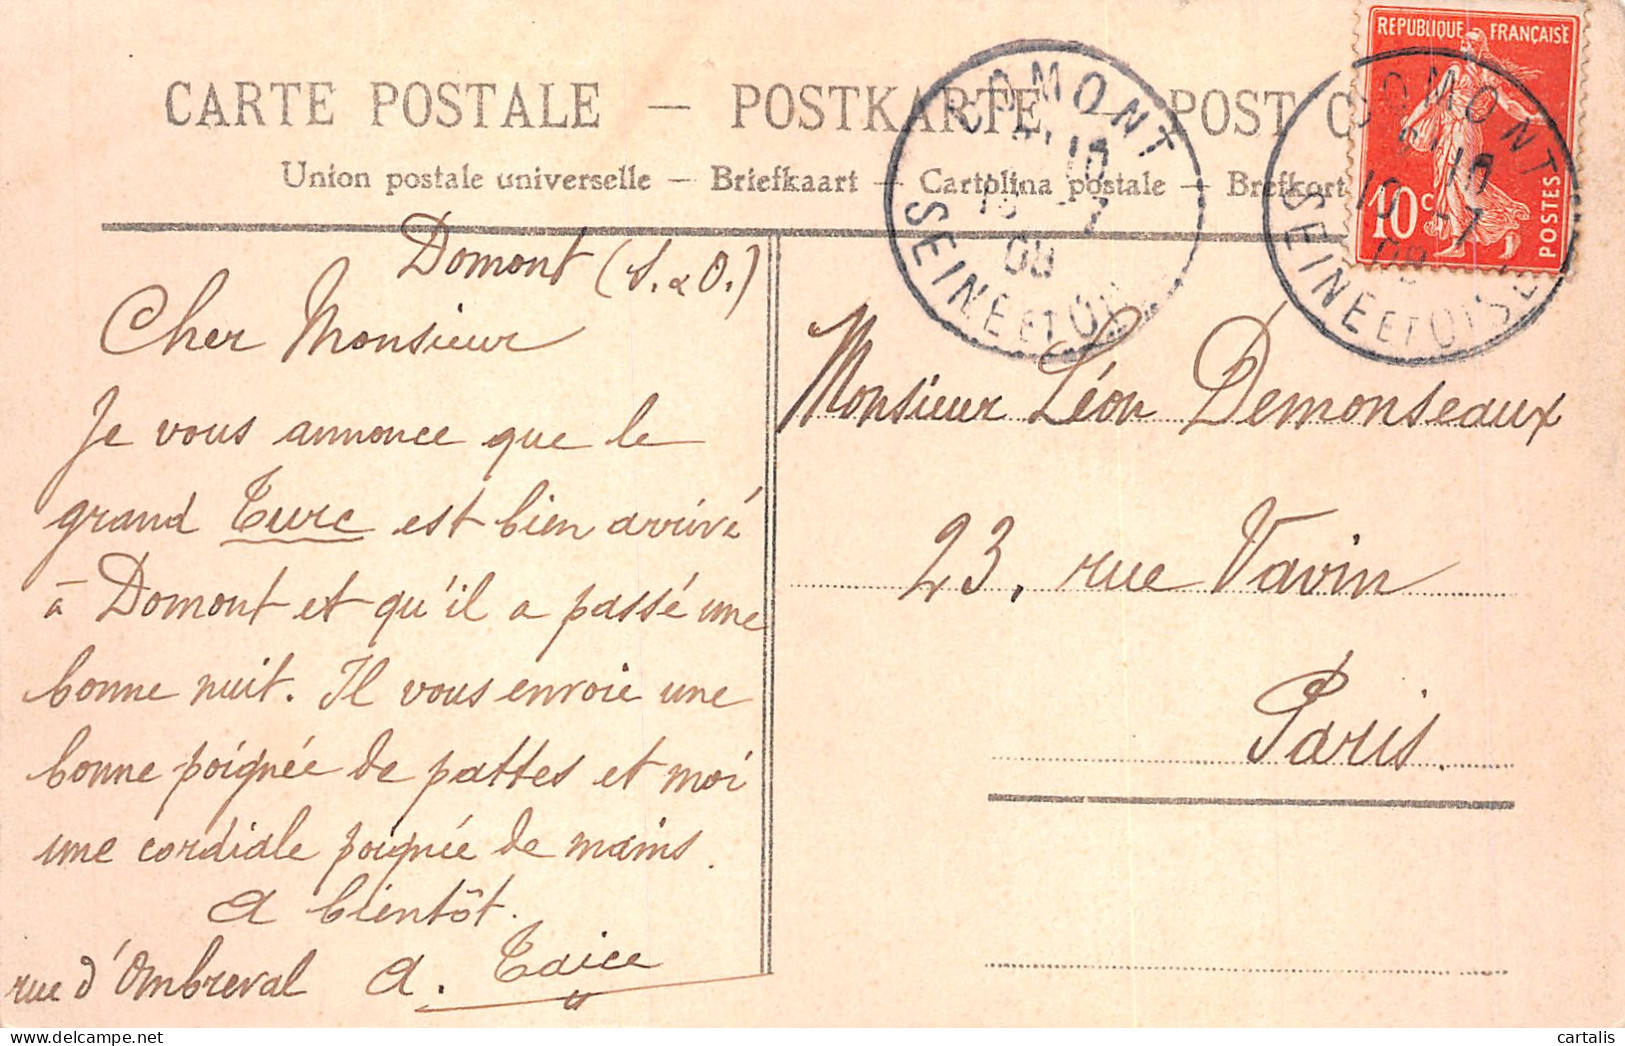 CARTE POSTALE — POSTKARTE — POST C
Union postale universelle — Briefkaart — Cartolina postale — Brefkort
REPUBLIQUE FRANÇAISE
10c
POSTES
DOMONT
10 -7
08
SEINE ET OISE
DOMONT
10 -7
08
SEINE ET OISE
Domont (S. & O.)
Cher Monsieur
Je vous annonce que le
grand Turc est bien arrivé
à Domont et qu'il a passé une
bonne nuit. Il vous envoie une
bonne poignée de pattes et moi
une cordiale poignée de mains.
A bientôt.
rue d'Ombreval A.
Monsieur Léon Demonseaux
23, rue Vavin
Paris.
cartalis